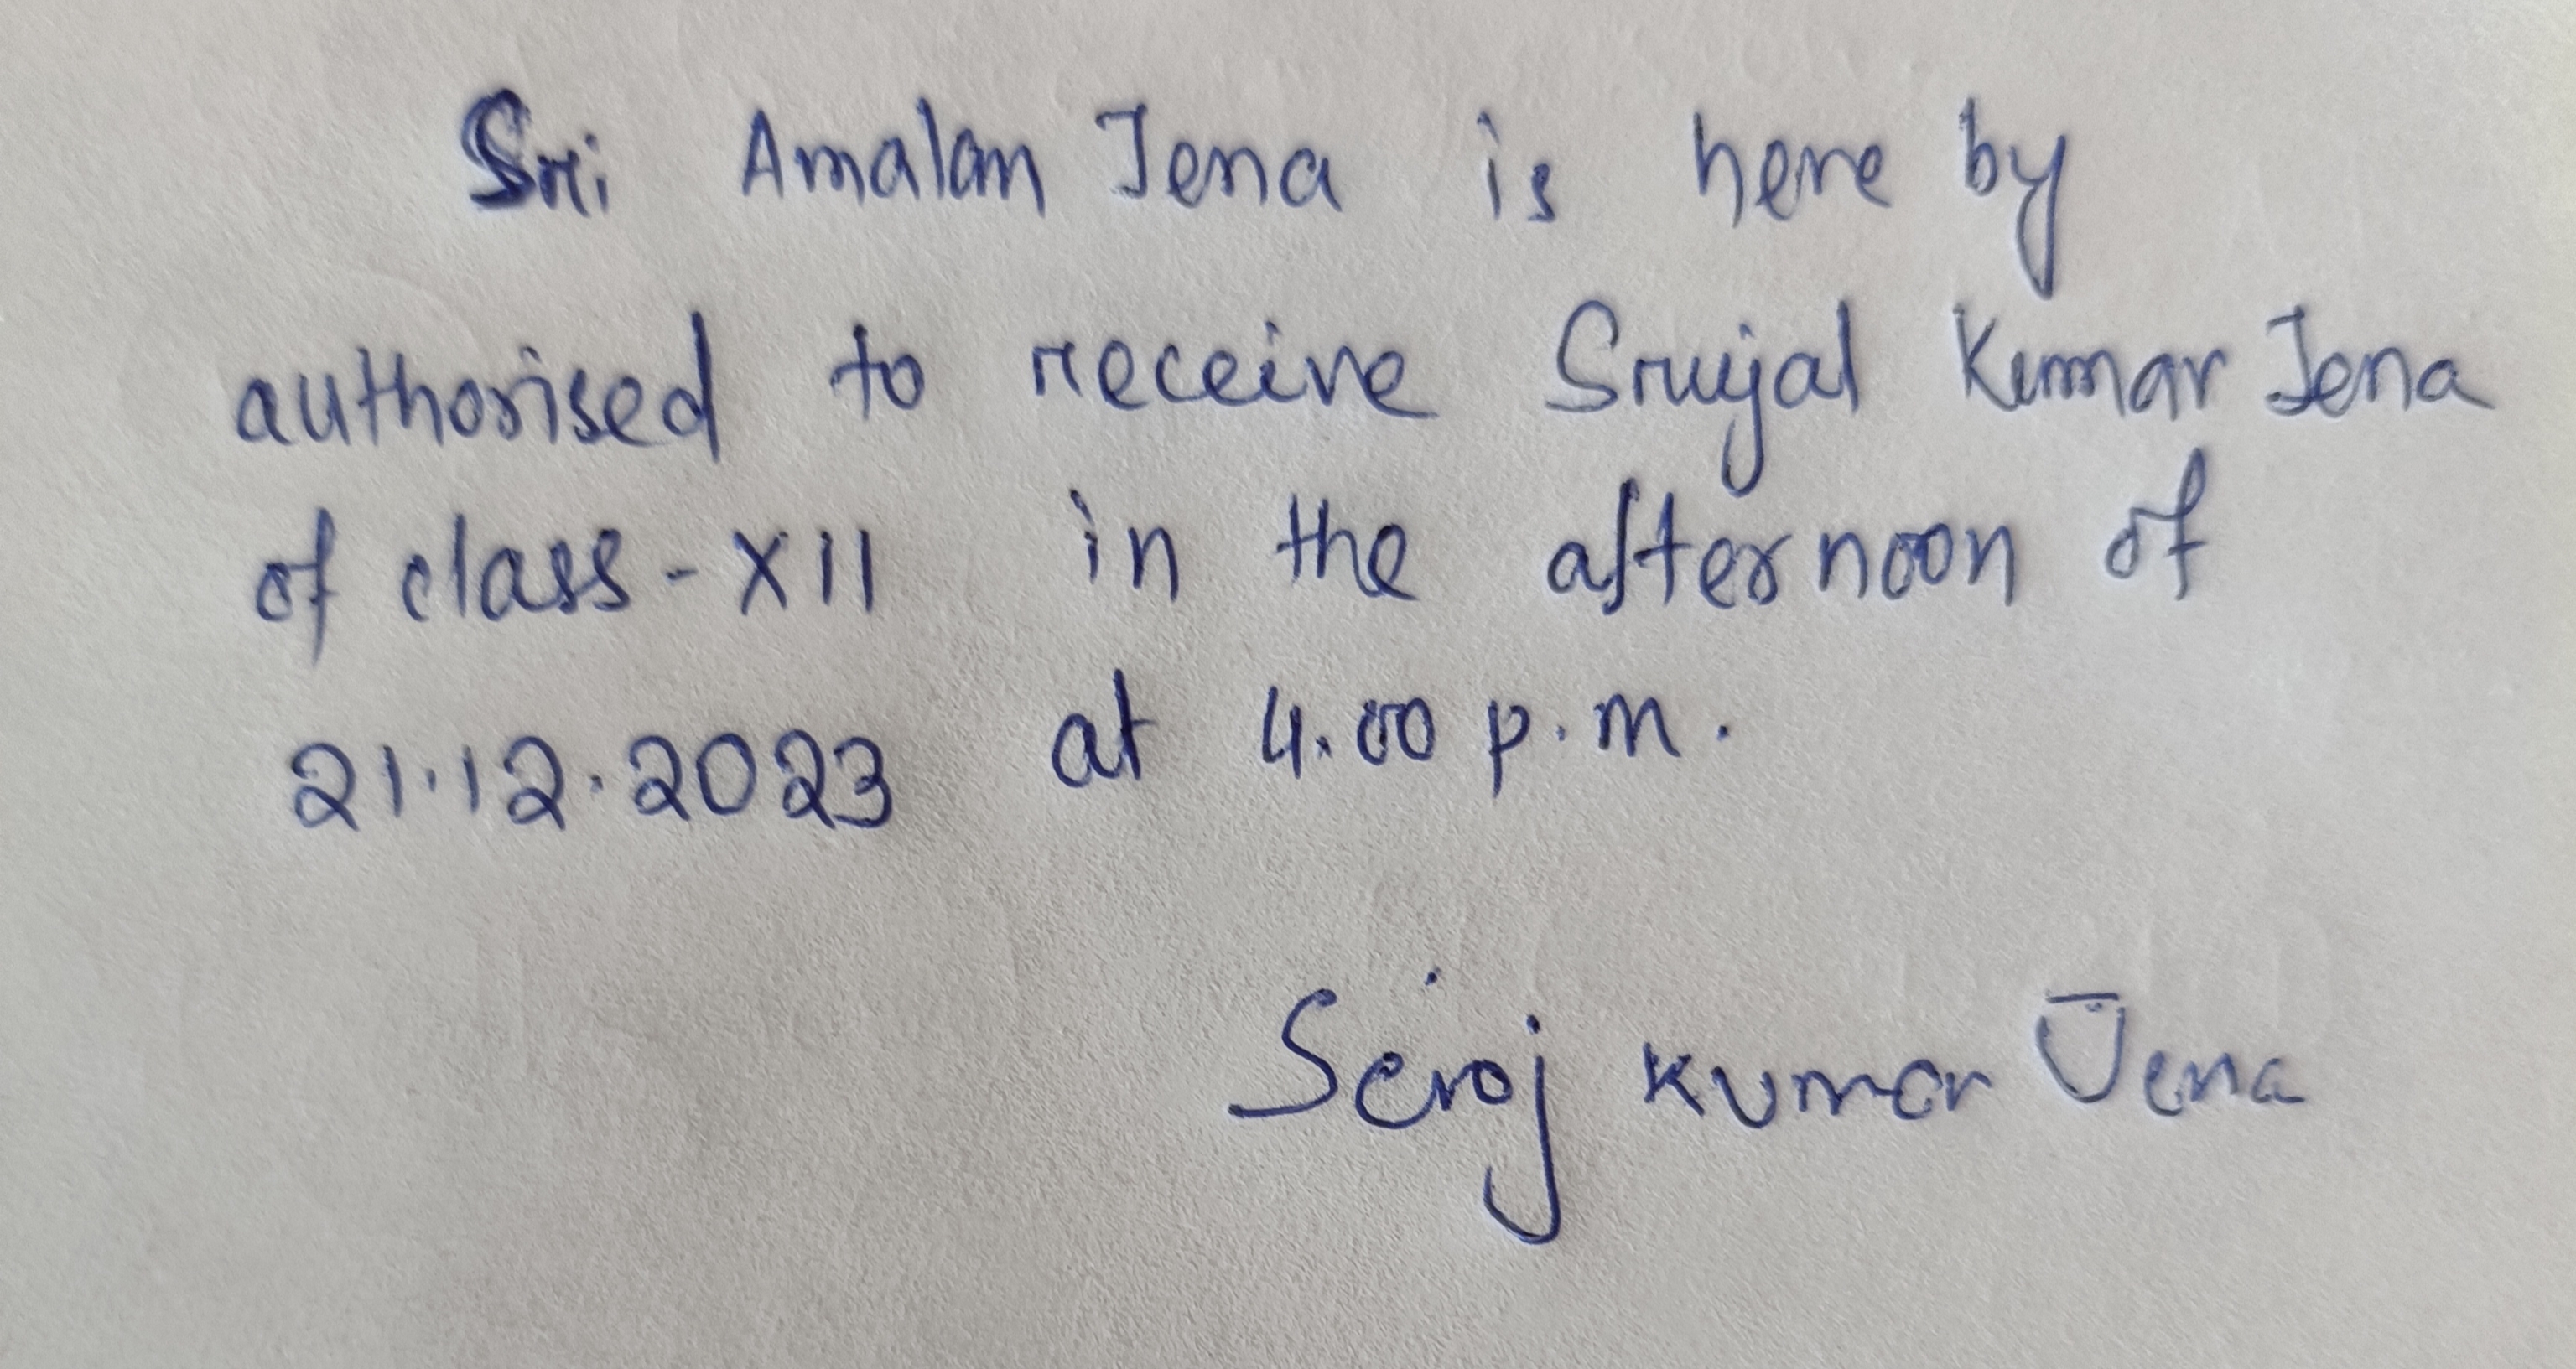 Sri Amalan Jena is here by
authorised to receive Srujal Kumar Jena
of class-XII in the afternoon of
21.12.2023 at 4.00 p.m.
Saroj Kumar Jena